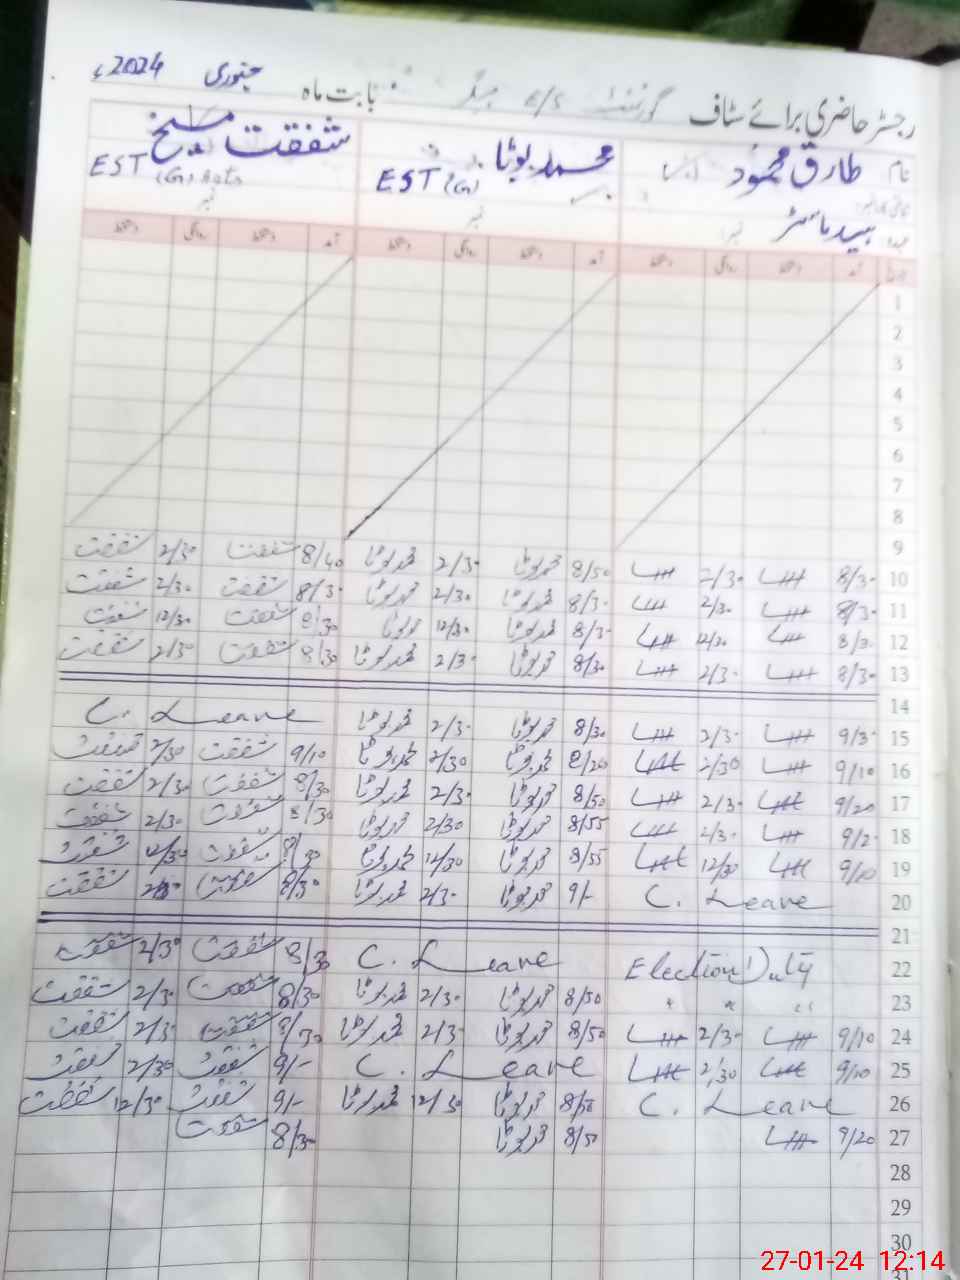 رجسٹر حاضری برائے سٹاف گورنمنٹ E/S بابت ماہ جنوری 2024ء
نام طارق محمود محمد بوٹا شفقت مسیح
EST (G) EST
عہدہ ہیڈ ماسٹر نمبر نمبر نمبر
تاریخ آمد دستخط روانگی دستخط آمد دستخط روانگی دستخط آمد دستخط روانگی دستخط
1
2
3
4
5
6
7
8
9
10 8/30 2/30 8/50 محمد بوٹا 2/30 محمد بوٹا 8/40 شفقت 2/30 شفقت
11 8/30 2/30 8/30 محمد بوٹا 2/30 محمد بوٹا 8/30 شفقت 2/30 شفقت
12 8/30 12/30 8/30 محمد بوٹا 12/30 محمد بوٹا 8/30 شفقت 12/30 شفقت
13 8/30 2/30 8/30 محمد بوٹا 2/30 محمد بوٹا 8/30 شفقت 2/30 شفقت
14
15 9/30 2/30 8/30 محمد بوٹا 2/30 محمد بوٹا C. Leave
16 9/10 2/30 8/20 محمد بوٹا 2/30 محمد بوٹا 9/10 شفقت 2/30 شفقت
17 9/20 2/30 8/50 محمد بوٹا 2/30 محمد بوٹا 8/30 شفقت 2/30 شفقت
18 9/20 2/30 8/55 محمد بوٹا 2/30 محمد بوٹا 8/30 شفقت 2/30 شفقت
19 9/10 12/30 8/55 محمد بوٹا 12/30 محمد بوٹا 8/30 شفقت 12/30 شفقت
20 C. Leave 9/- محمد بوٹا 2/30 محمد بوٹا 8/30 شفقت 2/30 شفقت
21
22 Election Duty C. Leave 8/30 شفقت 2/30 شفقت
23 " " " 8/50 محمد بوٹا 2/30 محمد بوٹا 8/30 شفقت 2/30 شفقت
24 9/10 2/30 8/50 محمد بوٹا 2/30 محمد بوٹا 8/30 شفقت 2/30 شفقت
25 9/10 2/30 C. Leave 9/- شفقت 2/30 شفقت
26 C. Leave 8/50 محمد بوٹا 12/30 محمد بوٹا 9/- شفقت 12/30 شفقت
27 9/20 8/50 محمد بوٹا 8/30 شفقت
28
29
30
31
27-01-24 12:14